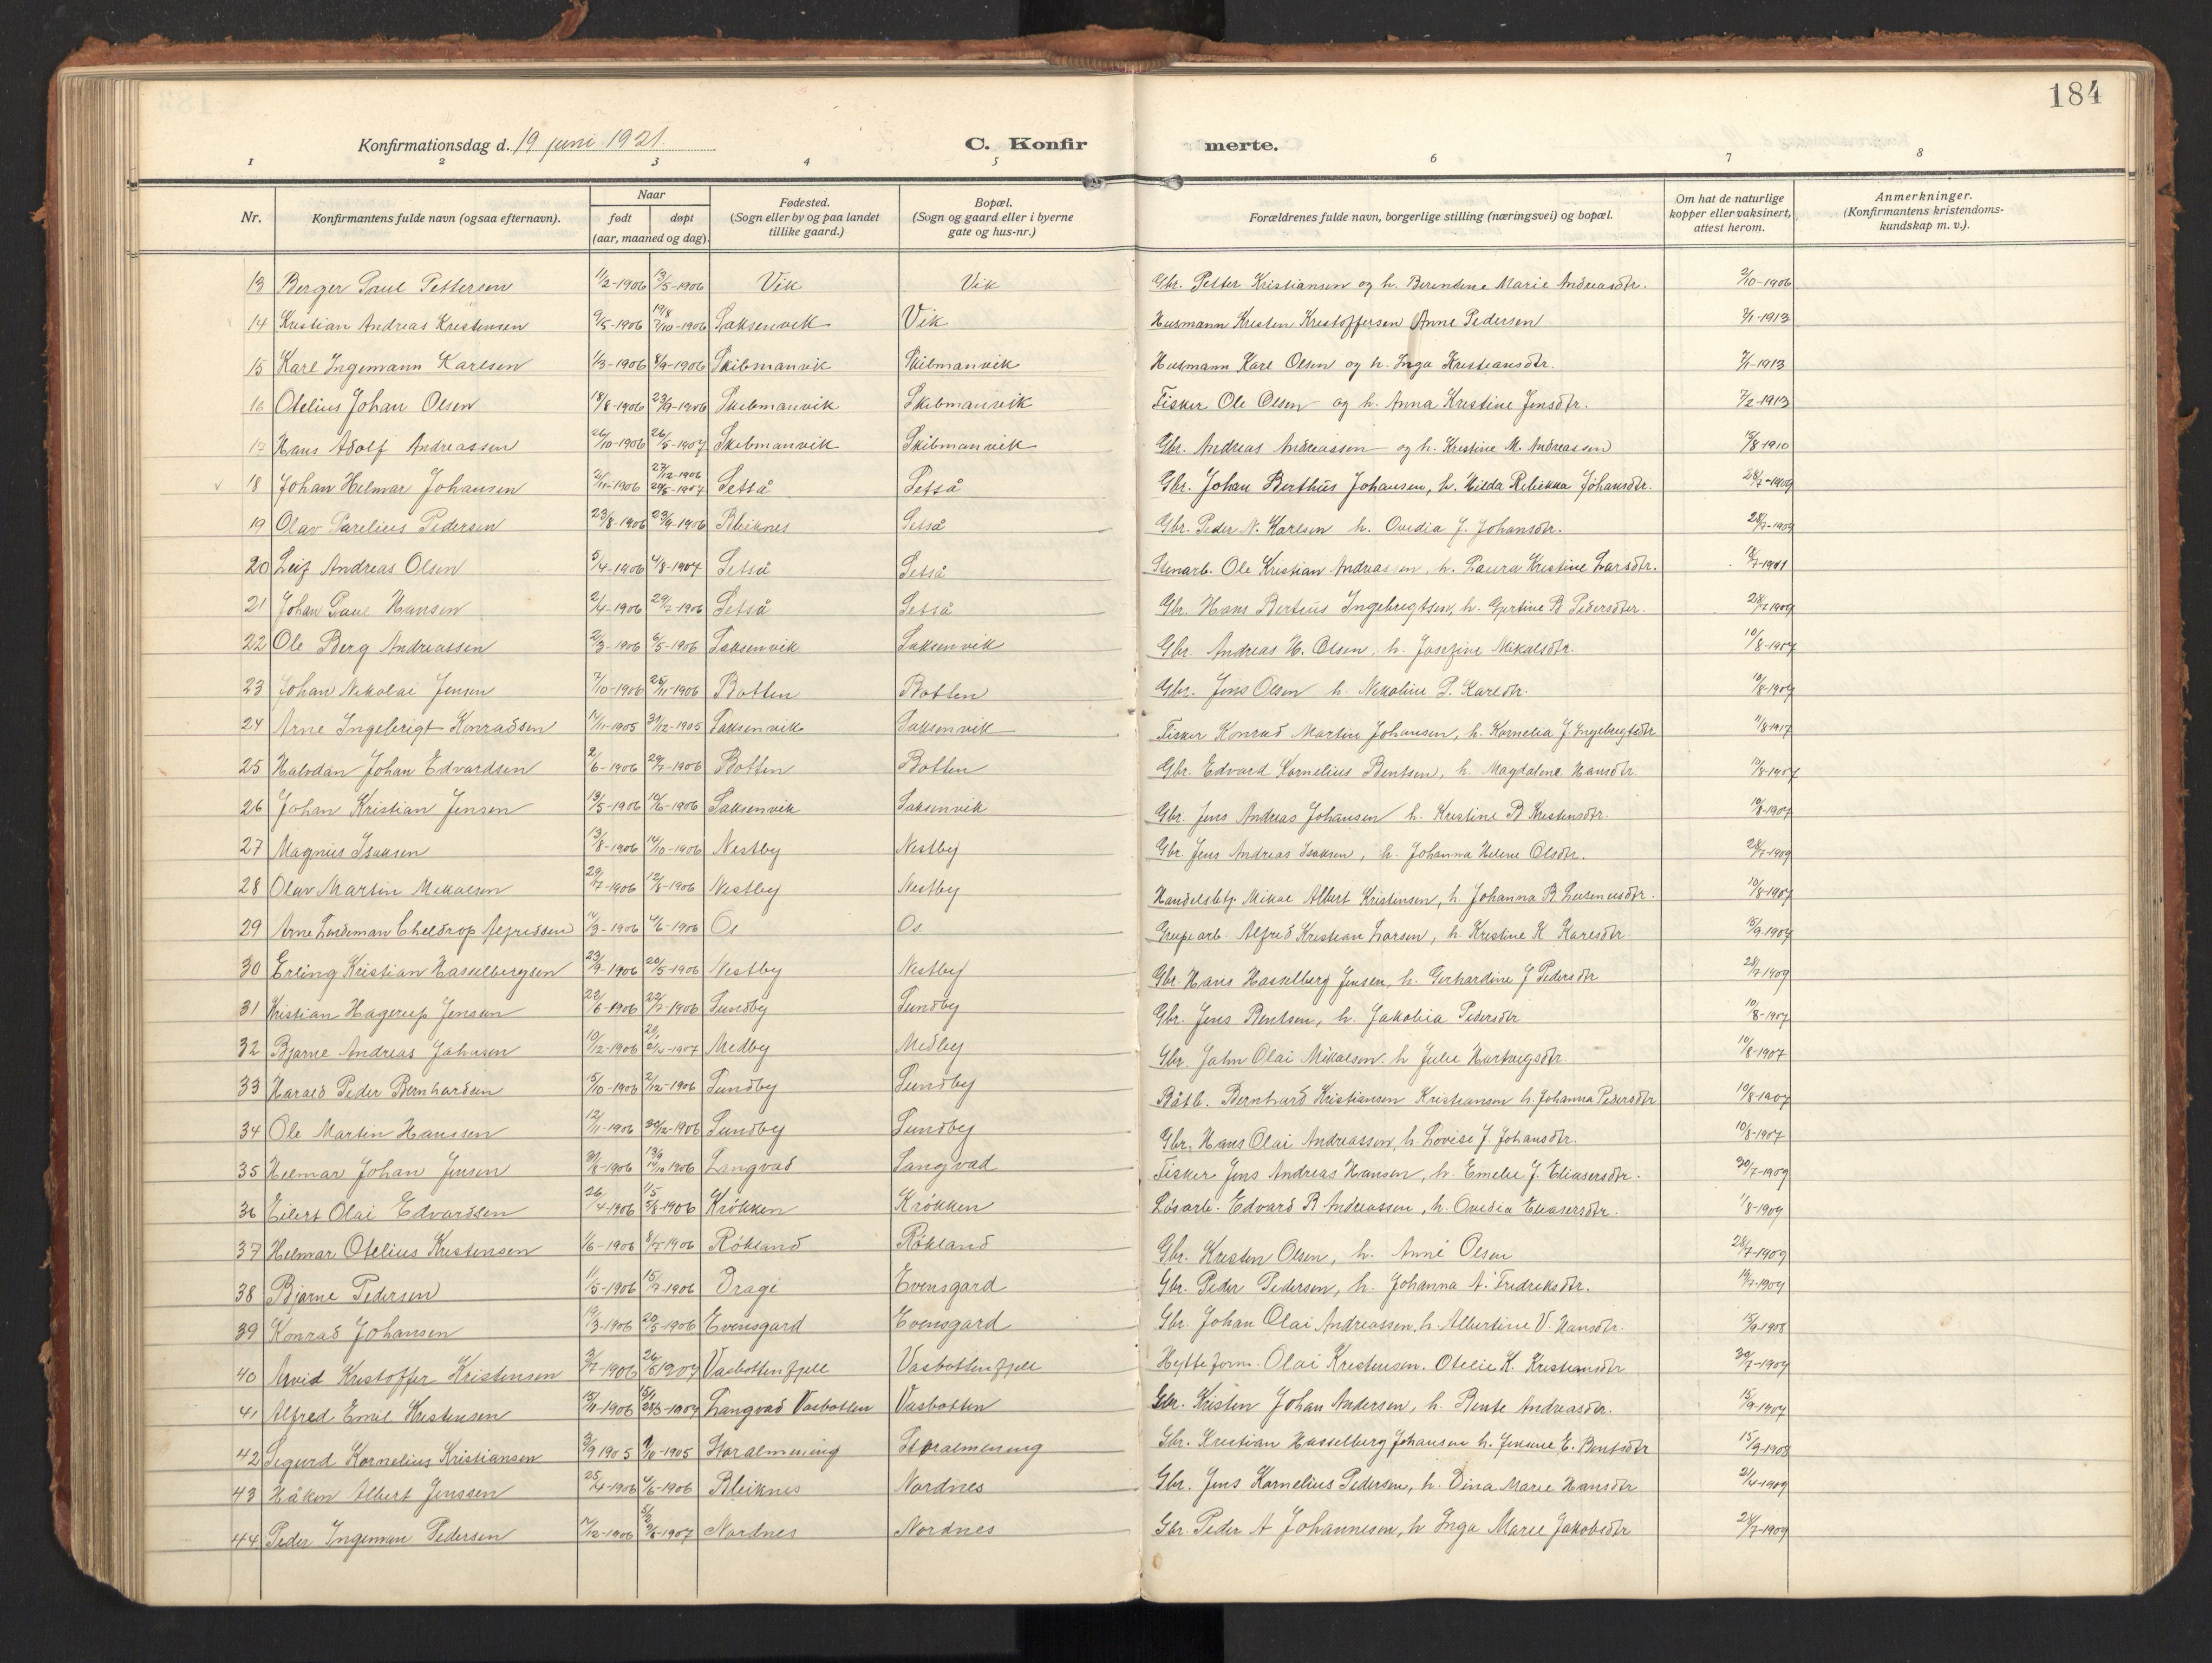 184
Konfirmationsdag d. 19 juni 1921.
C. Konfirmerte.
1 2 3 4 5 6 7 8
Nr. Konfirmantens fulde navn (ogsaa efternavn). Naar født døpt (aar, maaned og dag). Fødested. (Sogn eller by og paa landet tillike gaard.) Bopæl. (Sogn og gaard eller i byerne gate og hus-nr.) Forældrenes fulde navn, borgerlige stilling (næringsvei) og bopæl. Om hat de naturlige kopper eller vaksinert, attest herom. Anmerkninger. (Konfirmantens kristendomskundskap m. v.).
13 Berger Paul Pettersen 11/2-1906 13/5-1906 Vik Vik Gbr. Petter Kristiansen og h. Berendine Marie Andreasdtr. 2/10-1906
14 Kristian Andreas Kristensen 9/5-1906 19/8 7/10-1906 Saksenvik Vik Husmann Kristen Kristoffersen Anne Pedersen 7/1-1913
15 Karl Ingemann Karlsen 1/3-1906 8/9-1906 Skibmanvik Skibmanvik Husmann Karl Olsen og h. Inga Kristiansdtr. 7/1-1913
16 Otelius Johan Olsen 18/8-1906 23/9-1906 Skibmanvik Skibmanvik Fisker Ole Olsen og h. Anna Kristine Jensdtr. 7/2-1913
17 Hans Adolf Andreassen 26/10-1906 26/5-1907 Skibmanvik Skibmanvik Gbr. Andreas Andreassen og h. Kristine M. Andreassen 15/8-1910
18 Johan Helmar Johansen 2/11-1906 27/12-1906 29/5-1907 Setså Setså Gbr. Johan Berthus Johansen, h. Hilda Rebekka Johansdtr. 28/7-1909
19 Olav Parelius Pedersen 23/8-1906 23/9-1906 Bleiknes Setså Gbr. Peder N. Karlsen h. Ovedia J. Johansdtr. 28/7-1909
20 Leif Andreas Olsen 5/4-1906 4/8-1907 Setså Setså Stenarb. Ole Kristian Andreassen, h. Laura Kristine Larsdtr.
21 Johan Paul Hansen 2/4-1906 29/7-1906 Setså Setså Gbr. Hans Bertius Ingebrigtsen, h. Gjertine B Pedersdter. 28/7 1909
22 Ole Berg Andreassen 2/3-1906 6/5-1906 Saksenvik Saksenvik Gbr. Andreas H. Olsen, h. Josefine Mikalsdtr. 10/8-1907
23 Johan Nikolai Jensen 7/10-1906 25/11-1906 Botten Botten Gbr. Jens Olsen h. Nikoline P. Karldtr. 10/8-1907
24 Arne Ingebrigt Konradsen 14/11-1905 31/12-1905 Saksenvik Saksenvik Fisker Konrad Martin Johansen, h. Kornelia J. Ingebrigtsdtr 11/8-1917
25 Halvdan Johan Edvardsen 2/6-1906 29/7-1906 Botten Botten Gbr. Edvard Kornelius Bentsen, h. Magdalene Hansdtr. 10/8-1907
26 Johan Kristian Jensen 13/5-1906 10/6-1906 Saksenvik Saksenvik Gbr. Jens Andreas Johansen h. Kristine B Kristensdtr. 10/8-1907
27 Magnus Isaksen 13/8-1906 14/10-1906 Nestby Nestby Gbr. Jens Andreas Isaksen, h. Johanna Helene Olsdtr. 28/7-1909
28 Olav Martin Mikalsen 29/7-1906 12/8-1906 Nestby Nestby Handelsbetj. Mikal Albert Kristensen, h. Johanna B 10/8-1907
29 Arne Lindeman Cheldrop Alfredsen 14/3-1906 4/6-1906 Os Os. Grupearb. Alfred Kristian Larsen, h. Kristine K Karlsdtr. 15/9-1907
30 Erling Kristian Hasselbergsen 23/9-1906 20/5-1906 Nestby Nestby Gbr. Hans Hasselberg Jensen, h. Gerhardine J Pedersdtr 28/7-1909
31 Kristian Hagerup Jensen 22/6-1906 22/7-1906 Sundby Sundby Gbr. Jens Bentsen, h. Jakobia Pedersdtr 10/8-1907
32 Bjarne Andreas Johnsen 10/12-1906 Medby Medby Gbr. John Olai Mikalsen. h Julie Hartvigsdtr. 10/8-1907
33 Harald Peder Bernhardsen 15/10-1906 2/12-1906 Sundby Sundby Båtb. Bernhard Kristiansen Kristiansen h. Johanna Pedersdtr 10/8-1907
34 Ole Martin Hansen 12/11-1906 30/12-1906 Sundby Sundby Gbr. Hans Olai Andreassen, h. Lovise J. Johansdtr. 10/8-1907
35 Helmar Johan Jensen 31/8-1906 13/9 14/10 1906 Langvad Langvad Fisker Jens Andreas Hansen, h. Emelie J. Eliasersdtr. 30/7-1909
36 Eilert Olai Edvardsen 26/4-1906 1/5 5/8-1906 Krökken Krökken Lösarb. Edvard B Andreassen, h. Ovidia Eliasersdtr. 11/8-1909
37 Helmar Otelius Kristensen 1/6-1906 8/7-1906 Rökland Rökland Gbr. Kristen Olsen, h. Anne Olsen 28/7-1909
38 Bjarne Pedersen 11/5-1906 15/7-1906 Drage Evensgard Gbr. Peder Pedersen, h. Johanna A. Fredriksdtr.
39 Konrad Johansen 19/3-1906 20/5-1906 Evensgard Evensgard Gbr. Johan Olai Andreassen, h. Albertine V. Hansdtr. 15/9-1908
40 Arvid Kristoffer Kristensen 3/7-1906 26/5 1907 Vasbottenfjell Vasbottenfjell Hytteform. Olai Kristensen. Otelie K. Kristiansdtr 30/7-1907
41 Alfred Emil Kristensen 13/11-1906 Langvad Vasbotten Vasbotten Gbr. Kristen Johan Andersen, h. Bente Andreasdtr. 15/9-1907
42 Sigurd Kornelius Kristiansen 3/9 1905 1/10-1905 Storalmening Storalmening Gbr. Kristian Hasselberg Johansen h. Jensine E. Bentsdtr 15/9-1908
43 Håkon Albert Jenssen 25/4-1906 4/6-1906 Bleiknes Nordnes Gbr. Jens Kornelius Pedersen, h. Dina Marie Hansdtr 21/4-1909
44 Peder Ingeman Pedersen 14/12-1906 5/2 9/6-1907 Nordnes Nordnes Gbr. Peder A Johannesen, h Inga Marie Jakobsdtr